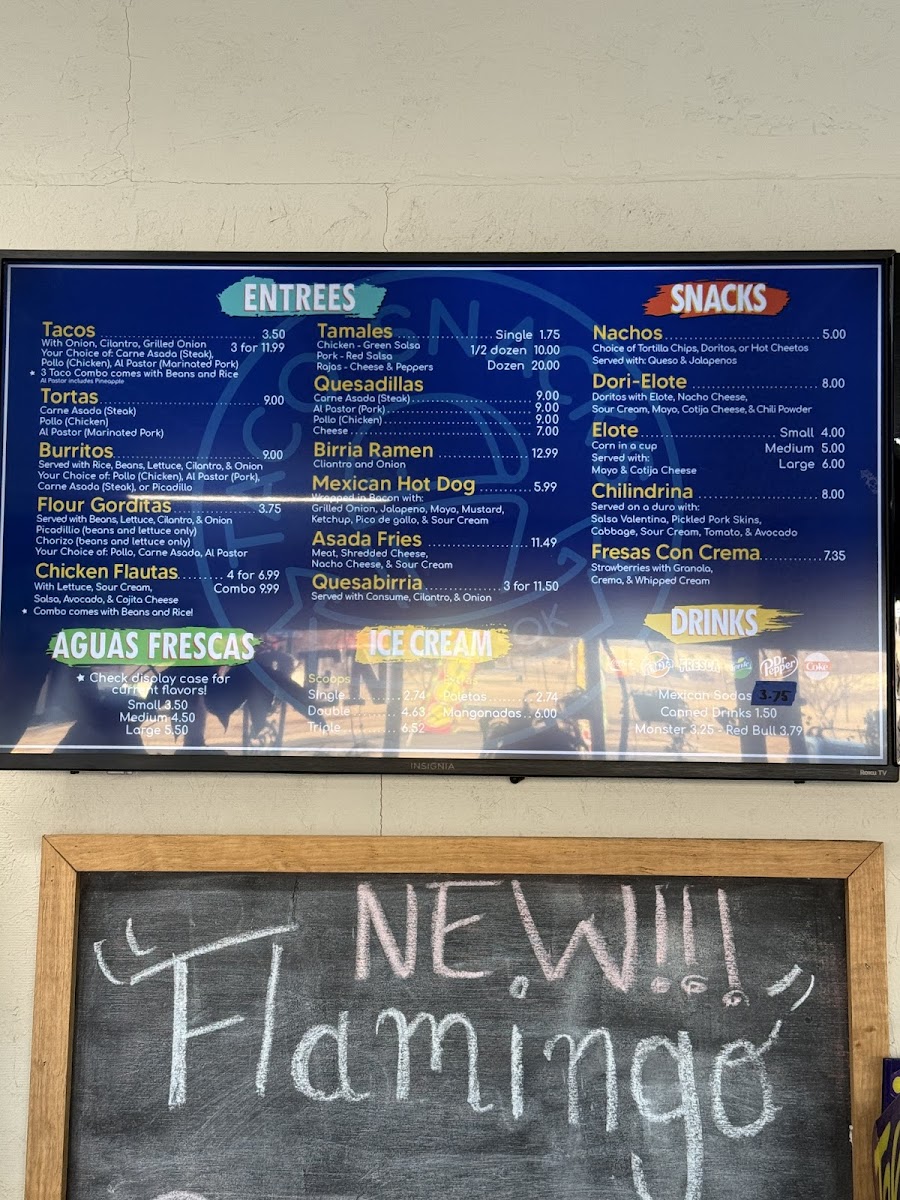 ENTREES
Tacos 3.50
With Onion, Cilantro, Grilled Onion
3 for 11.99
Your Choice of: Carne Asada (Steak),
Pollo (Chicken), Al Pastor (Marinated Pork)
★ 3 Taco Combo comes with Beans and Rice
Al Pastor includes Pineapple
Tortas 9.00
Carne Asada (Steak)
Pollo (Chicken)
Al Pastor (Marinated Pork)
Burritos 9.00
Served with Rice, Beans, Lettuce, Cilantro, & Onion
Your Choice of: Pollo (Chicken), Al Pastor (Pork),
Carne Asada (Steak), or Picadillo
Flour Gorditas 3.75
Served with Beans, Lettuce, Cilantro, & Onion
Picadillio (beans and lettuce only)
Chorizo (beans and lettuce only)
Your Choice of: Pollo, Carne Asada, Al Pastor
Chicken Flautas 4 for 6.99
With Lettuce, Sour Cream,
Combo 9.99
Salsa, Avocado, & Cojita Cheese
★ Combo comes with Beans and Rice!
Tamales Single 1.75
Chicken - Green Salsa 1/2 dozen 10.00
Pork - Red Salsa
Rajas - Cheese & Peppers Dozen 20.00
Quesadillas
Carne Asada (Steak) 9.00
Al Pastor (Pork) 9.00
Pollo (Chicken) 9.00
Cheese 7.00
Birria Ramen 12.99
Cliantro and Onion
Mexican Hot Dog 5.99
Wrapped in Bacon with:
Grilled Onion, Jalapeno, Mayo, Mustard,
Ketchup, Pico de gallo, & Sour Cream
Asada Fries 11.49
Meat, Shredded Cheese,
Nacho Cheese, & Sour Cream
Quesabirria 3 for 11.50
Served with Consume, Cilantro, & Onion
SNACKS
Nachos 5.00
Choice of Tortilla Chips, Doritos, or Hot Cheetos
Served with: Queso & Jalapenos
Dori-Elote 8.00
Doritos with Elote, Nacho Cheese,
Sour Cream, Mayo, Cotija Cheese, & Chili Powder
Elote Small 4.00
Corn in a cup Medium 5.00
Served with:
Large 6.00
Mayo & Cotija Cheese
Chilindrina 8.00
Served on a duro with:
Salsa Valentina, Pickled Pork Skins,
Cabbage, Sour Cream, Tomato, & Avocado
Fresas Con Crema 7.35
Strawberries with Granola,
Crema, & Whipped Cream
AGUAS FRESCAS
★ Check display case for
current flavors!
Small 3.50
Medium 4.50
Large 5.50
ICE CREAM
Scoops
Single 2.74
Double 4.63
Triple 6.52
Paletas 2.74
Mangonadas 6.00
DRINKS
FRESCA
Dr Pepper
Coke
Mexican Sodas 3.75
Canned Drinks 1.50
Monster 3.25 - Red Bull 3.79
INSIGNIA
Roku TV
NEW!!!
Flamingo